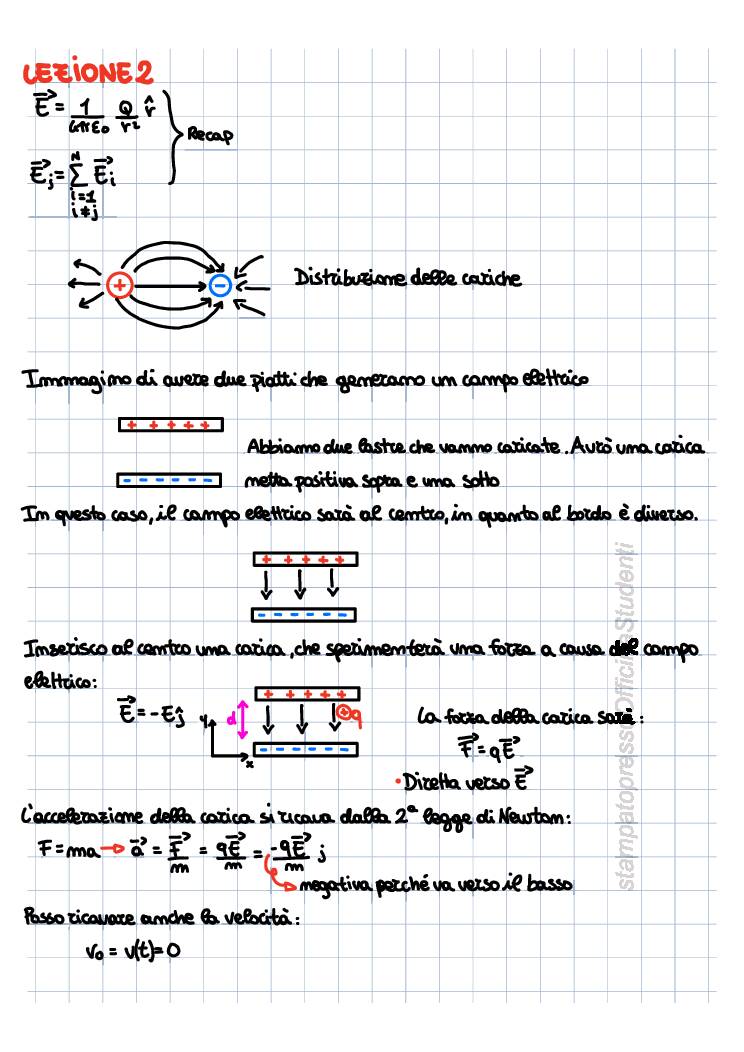 LEZIONE 2
E⃗ = 1/(4πε₀) Q/r² r̂
Recap
E⃗ⱼ = Σ_{i=1, i≠j}^{N} E⃗ᵢ
+ −
Distribuzione delle cariche
Immagino di avere due piatti che generano un campo elettrico
+ + + + +
Abbiamo due lastre che vanno caricate. Avrò una carica
- - - - - -
netta positiva sopra e una sotto
In questo caso, il campo elettrico sarà al centro, in quanto al bordo è diverso.
+ + + + +
- - - - - -
Inserisco al centro una carica, che sperimenterà una forza a causa del campo
elettrico:
+ + + + +
E⃗ = -Eĵ
y d + q
La forza della carica sarà:
- - - - - -
x
F⃗ = qE⃗
• Diretta verso E⃗
L'accelerazione della carica si ricava dalla 2ª legge di Newton:
F = ma → a⃗ = F⃗/m = qE⃗/m = -qE⃗/m j
negativa perché va verso il basso
Posso ricavare anche la velocità:
v₀ = v(t) = 0
stampatopressoOfficineStudenti